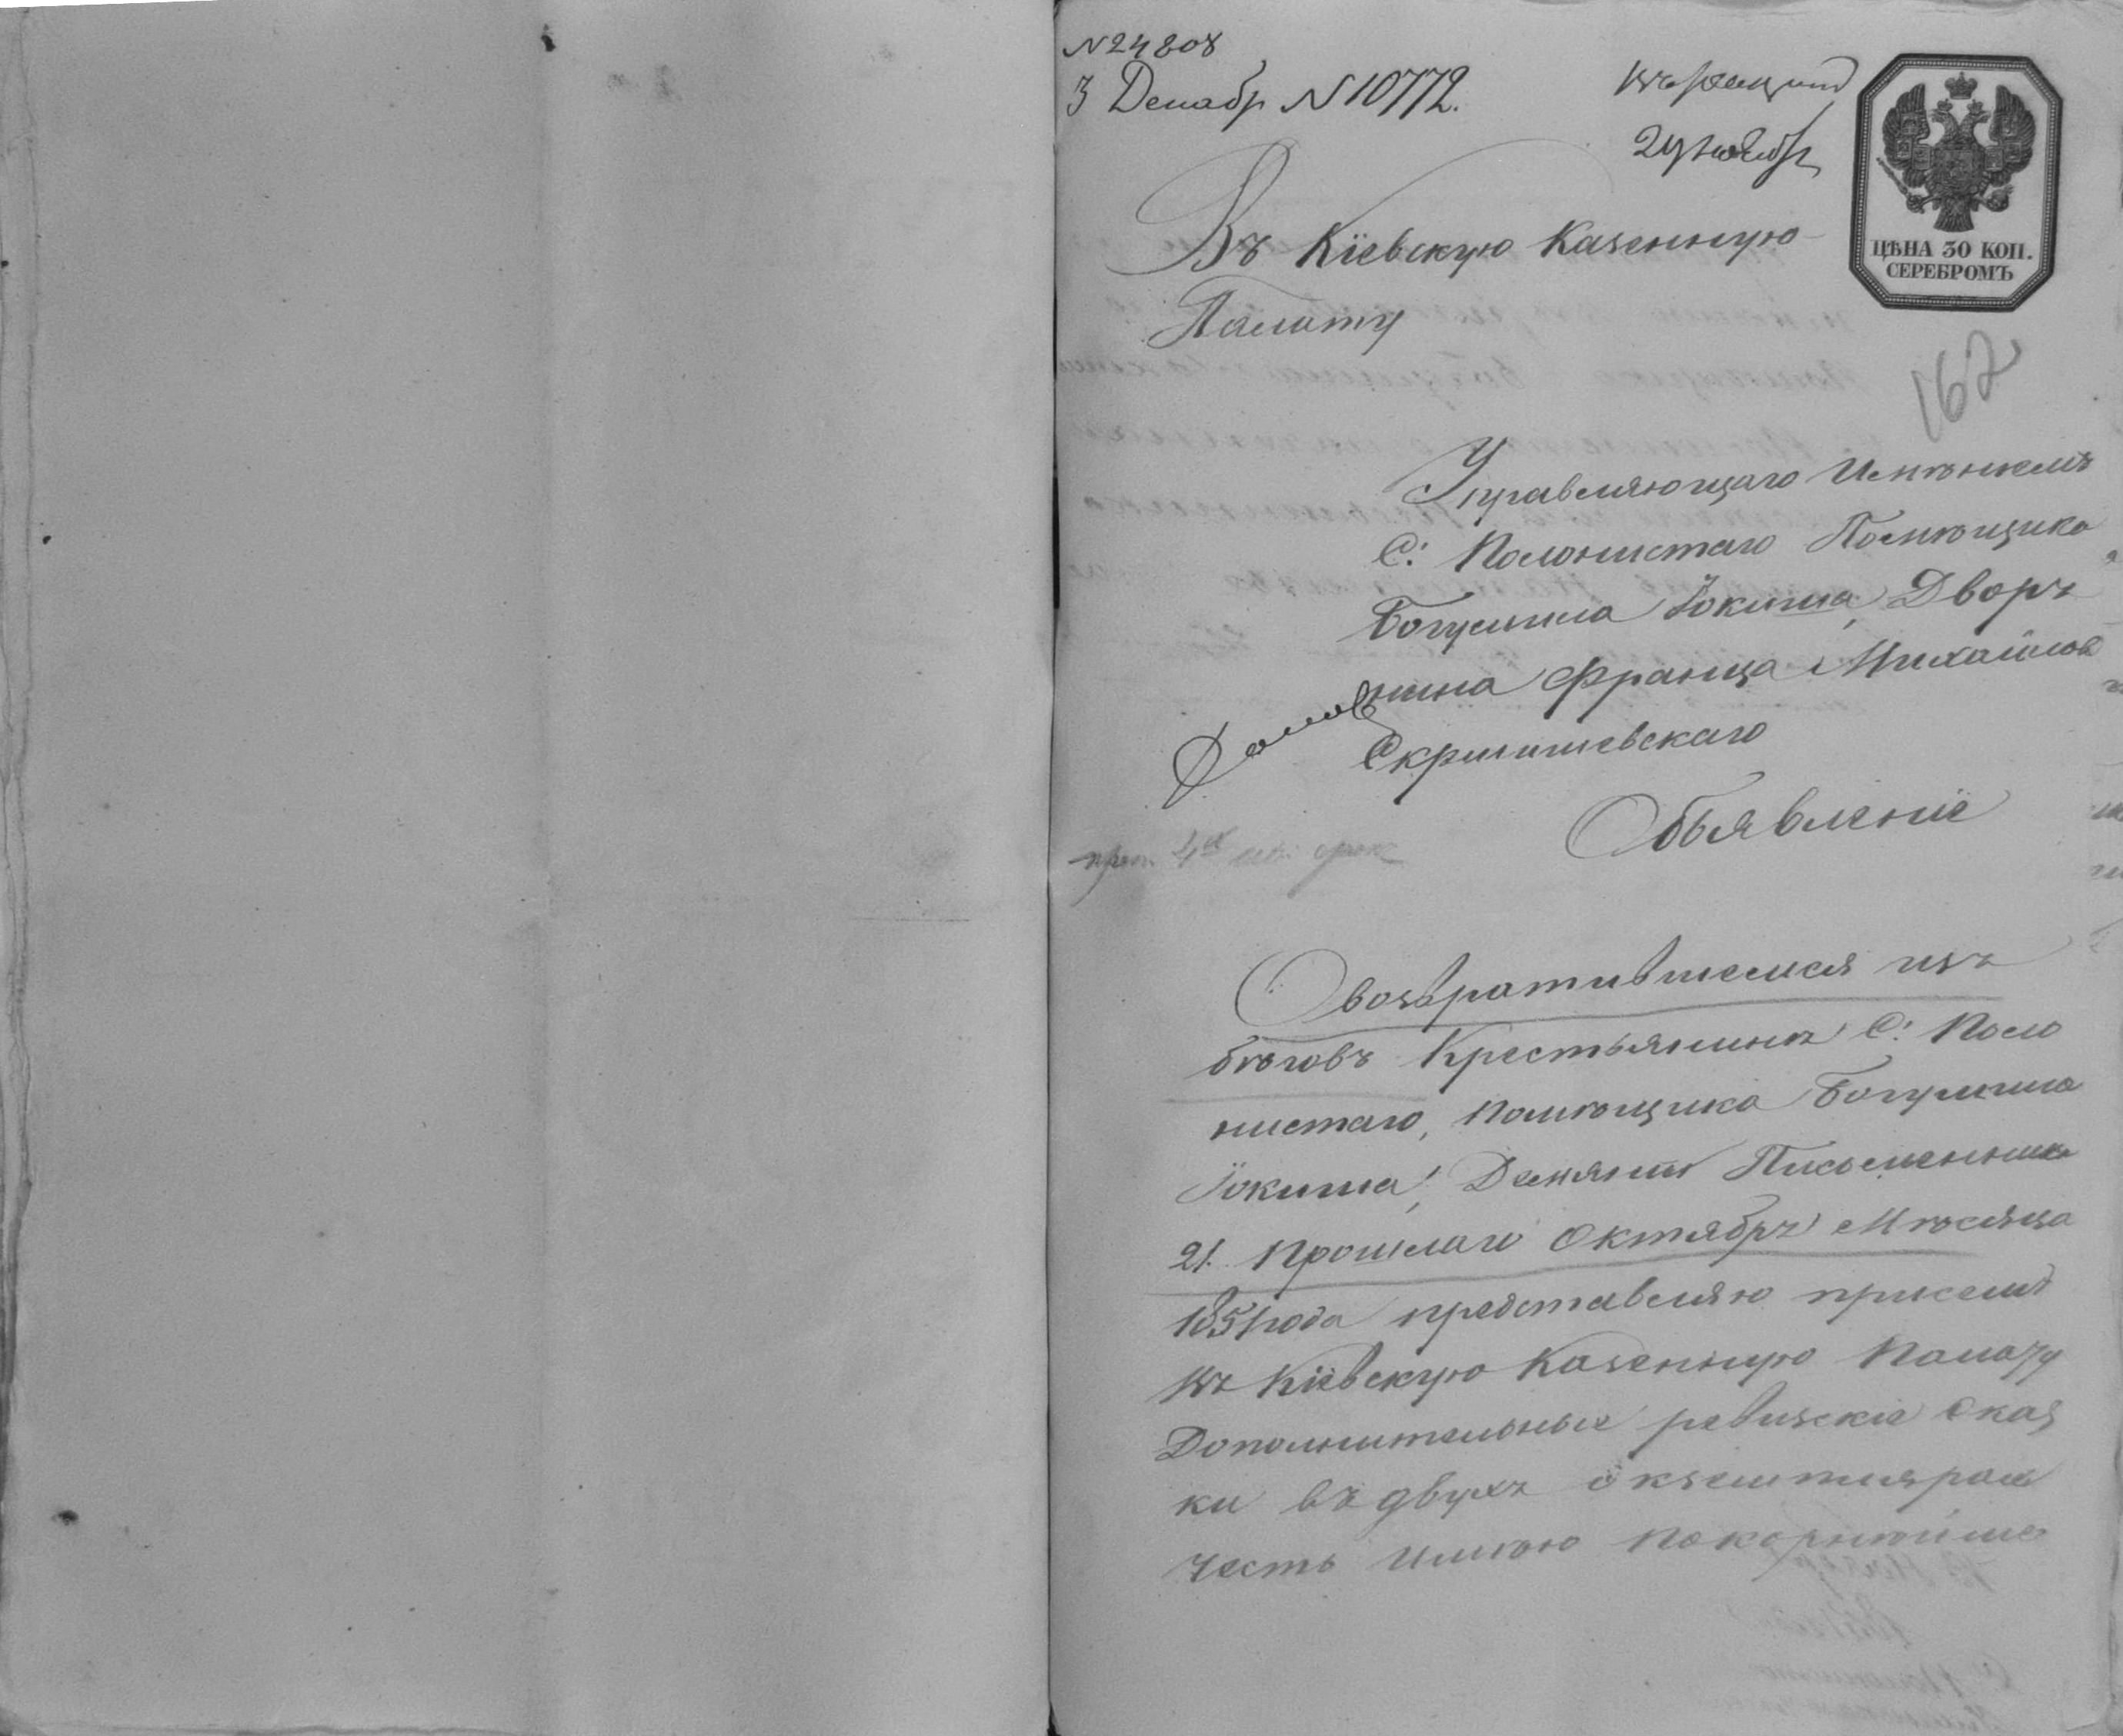 N 24808
3 Декабр N 10772.
24 ноябр
ЦѢНА 30 КОП.
СЕРЕБРОМЪ
Въ Кіевскую Казенную
Палату
162
Управляющаго Имѣніемъ
С: Полонистаго Помѣщика
Богумила Іокиша, Дворя
нина Франца Михайлов
Скришевскаго
Объявленіе
О возвратившемся изъ
бѣговъ Крестьянинѣ С: Поло
нистаго, помѣщика Богумила
Іокиша, Демяни Письменника
21. Прошлаго Октября Мѣсяца
1851 года представляю присемъ
въ Кіевскую Казенную Палату
Дополнительные ревизскіе Сказ
ки въ двухъ экземплярах
честь имѣю покорнѣйше